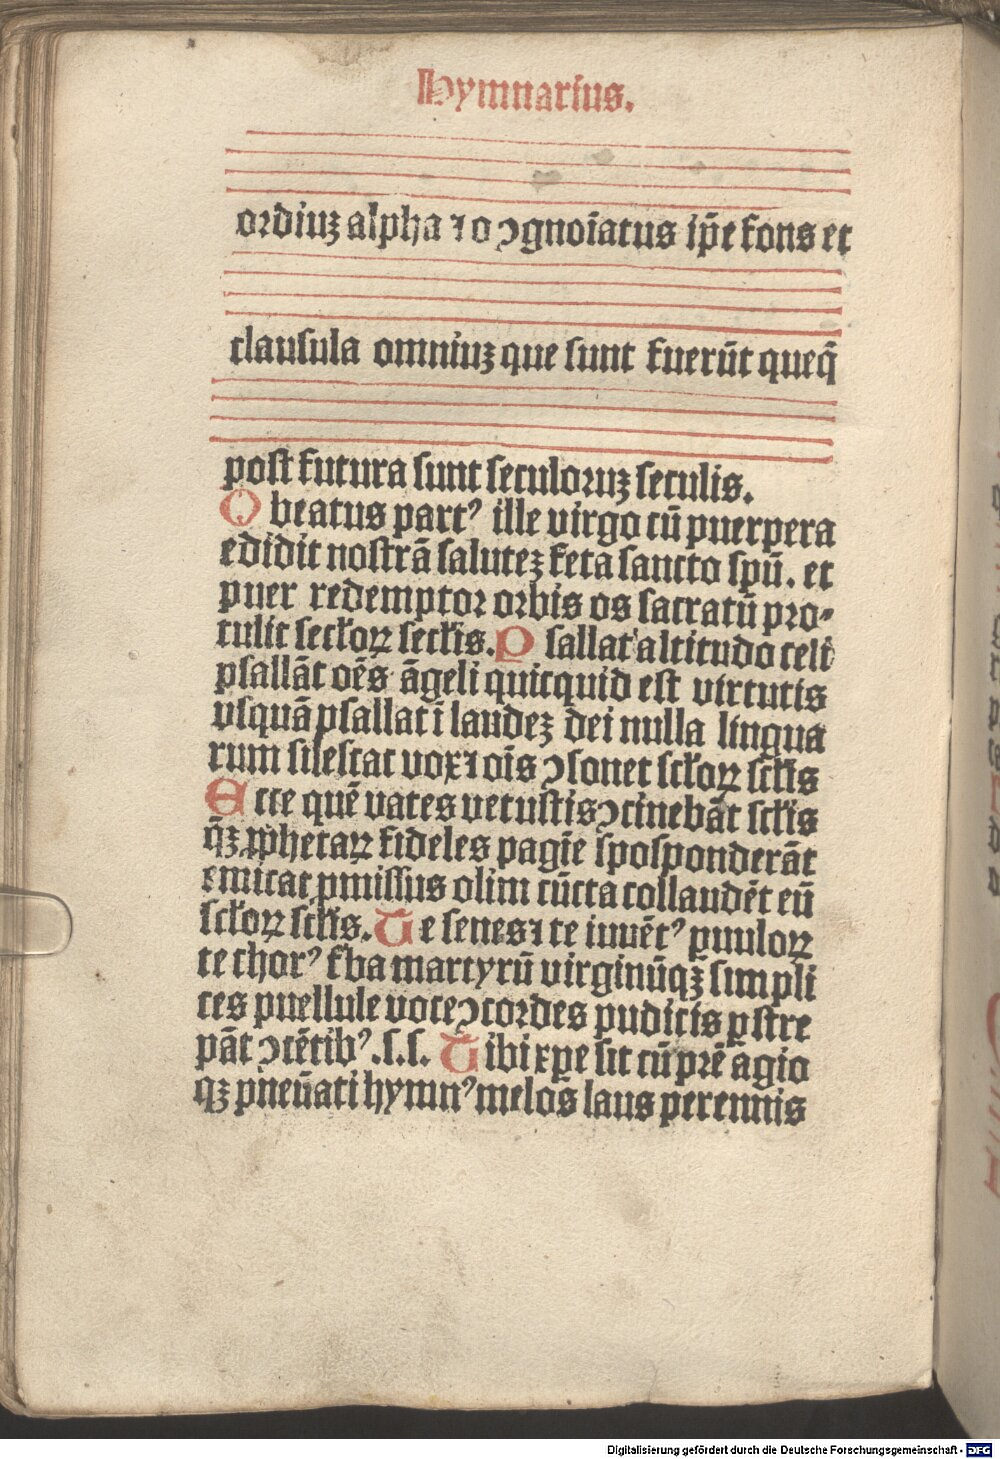 Hymnarius.
ordiuꝫ alpha ⁊ o ꝯgnoīatus ip̄e fons et
clausula omniuꝫ que sunt fuerūt queq̄
post futura sunt seculoruꝫ seculis.
O beatus partꝰ ille virgo cū puerpera
edidit nostrā saluteꝫ feta sancto spū. et
puer redemptor orbis os sacratū pro⸗
tulit secłoꝝ secłis. P sallat altitudo celi
psallāt oēs āgeli quicquid est virtutis
vsquā psallat ī laudeꝫ dei nulla lingua
rum silescat vox ⁊ oīs ꝯsonet scłoꝝ scłis
E cce quē vates vetustis ꝯcinebāt scłis
q̄ꝫ ꝓphetaꝝ fideles pagīe sposponderāt
emicat ꝓmissus olim cūcta collaudēt eū
scłoꝝ scłis. T e senes ⁊ te iuuētꝰ ꝑuuloꝝ
te chorꝰ t̄ba martyrū virginūqꝫ simpli
ces puellule voce ꝯcordes pudicis ꝑstre
pāt ꝯcētibꝰ. s. s. T ibi xp̄e sit cū pr̄e agio
qꝫ pneūati hymnꝰ melos laus perennis
Digitalisierung gefördert durch die Deutsche Forschungsgemeinschaft - DFG